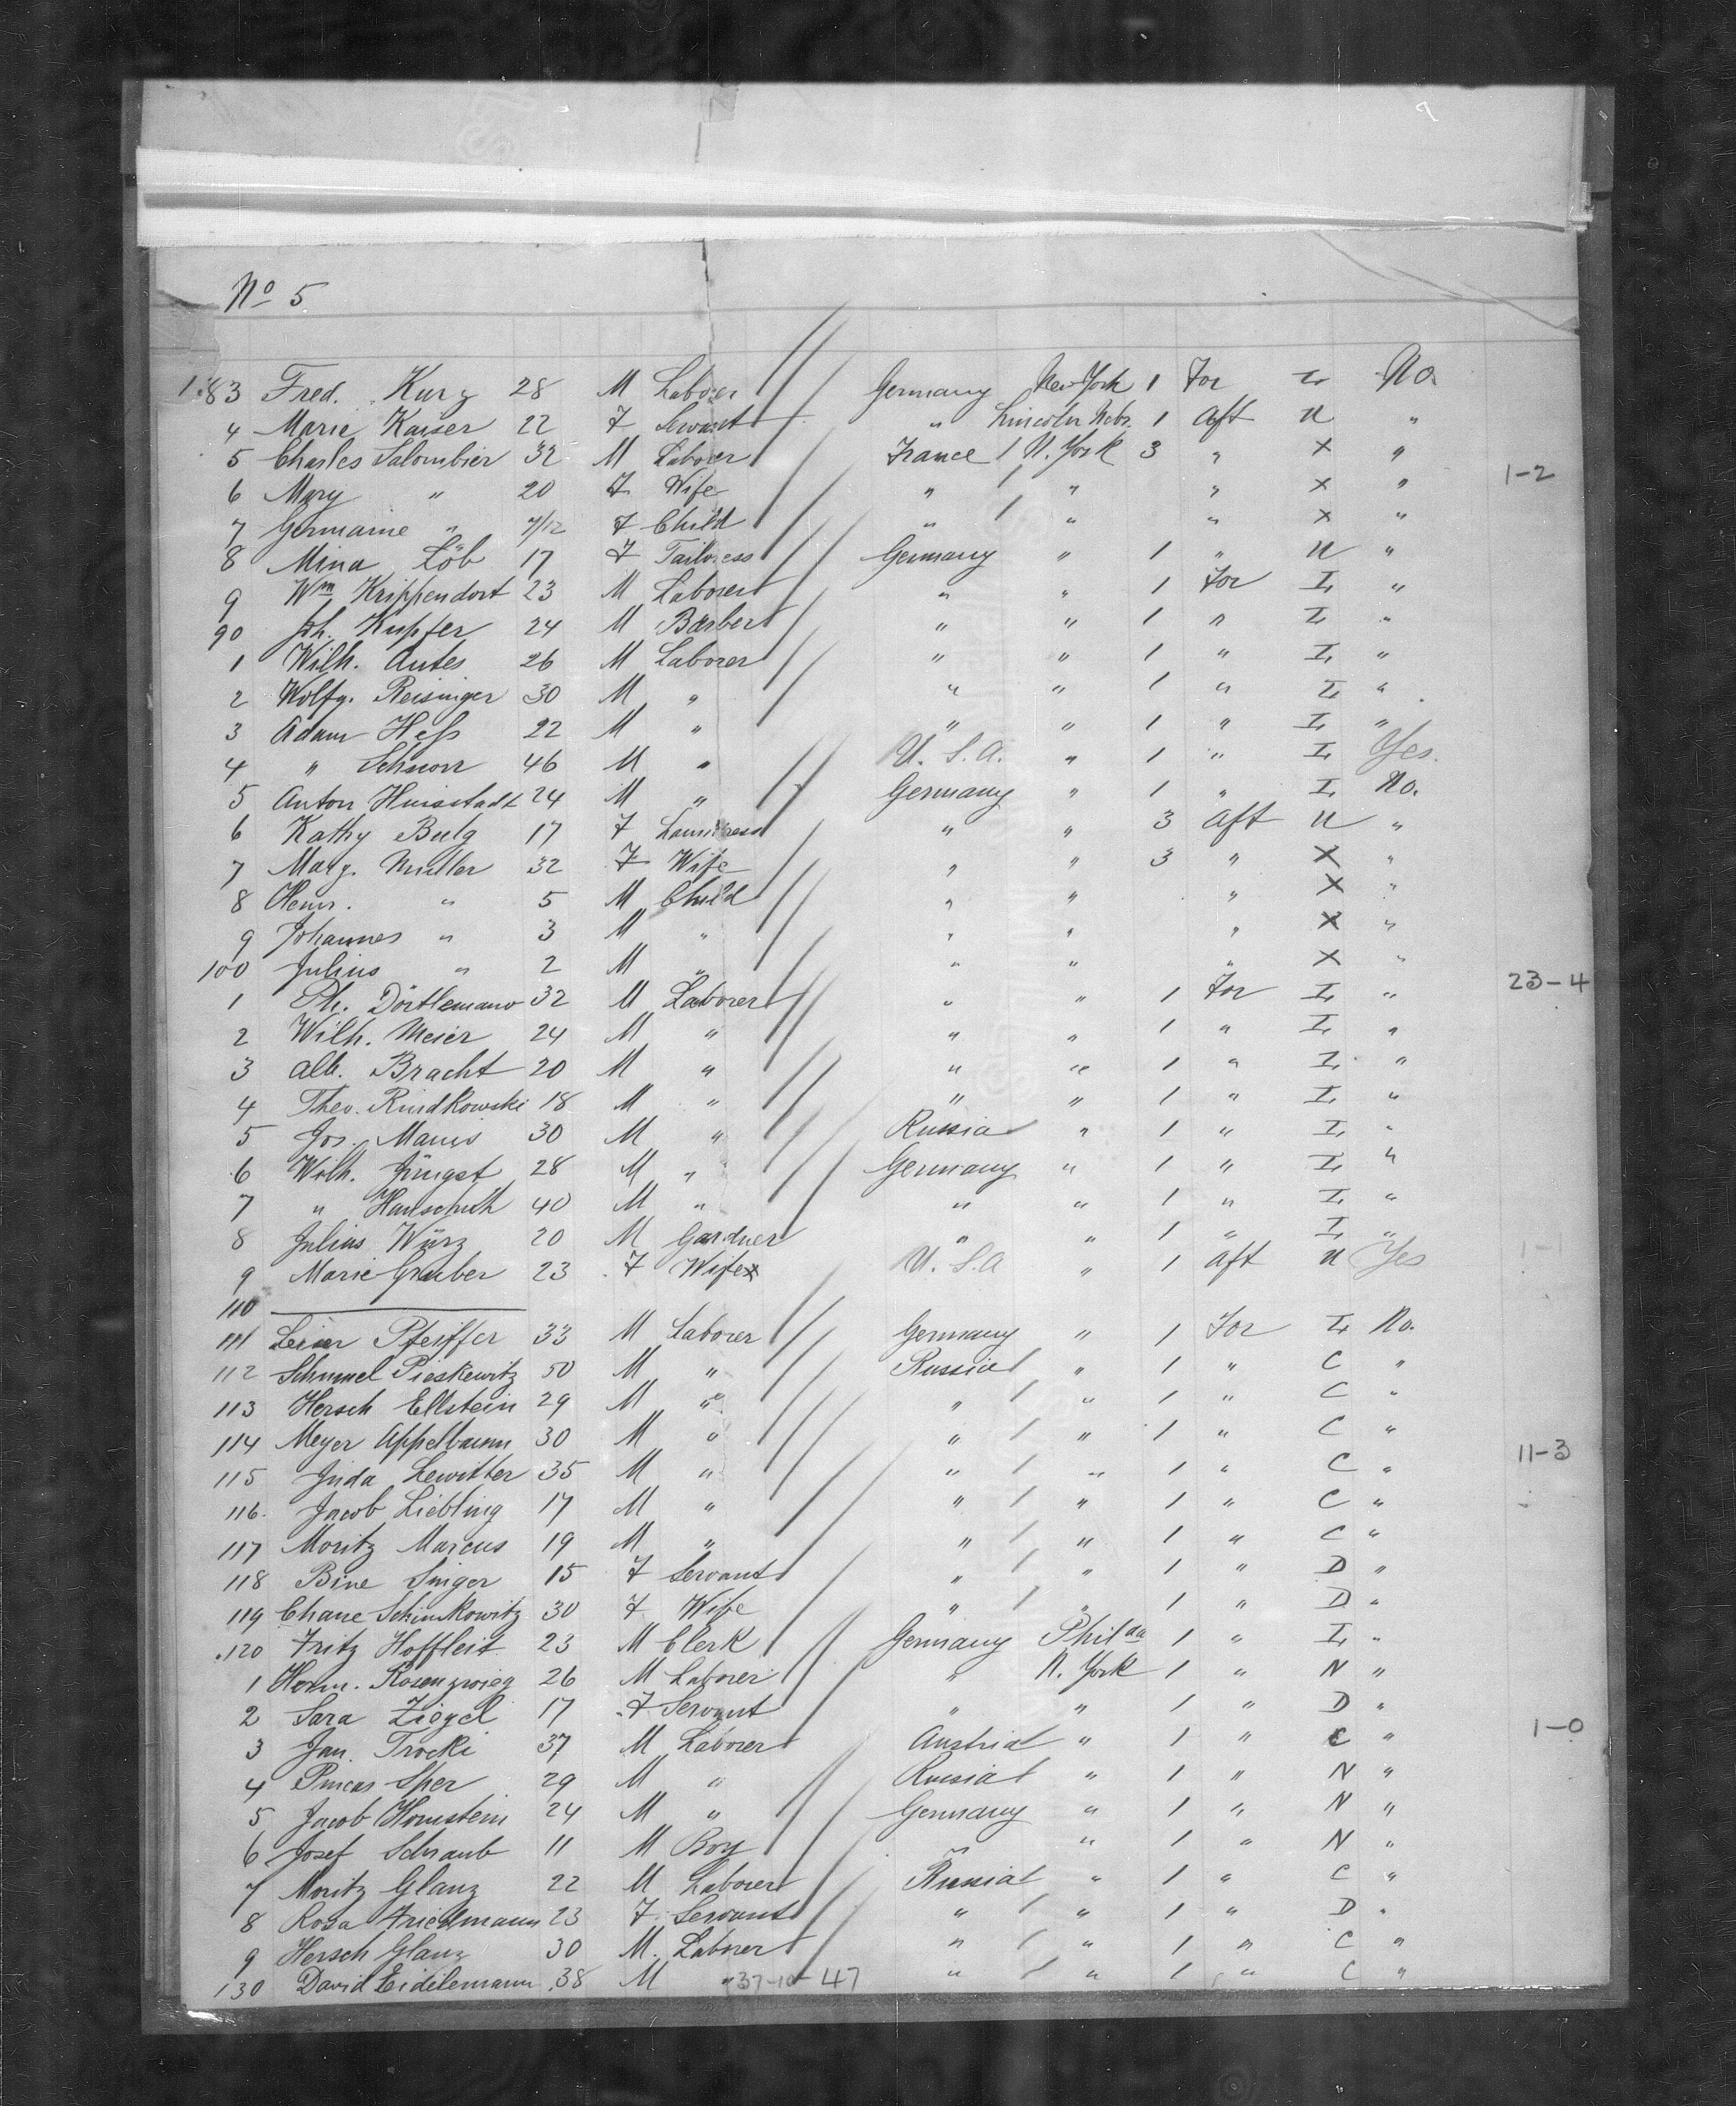 No 5
183 Fred. Kurz 28 M Laborer Germany New York 1 For I No.
4 Marie Kaiser 22 F Servant " Lincoln Nebr. 1 Aft U "
5 Charles Salombier 32 M Laborer France 1 N. York 3 " X "
1-2
6 Mary " 20 F Wife " 1 " " X "
7 Germaine " 7/12 F Child " 1 " " X "
8 Mina Löb 17 F Tailoress Germany " 1 " U "
9 Wm Krippendorf 23 M Laborer " " 1 For I "
90 Joh. Kupfer 24 M Barber " " 1 " I "
1 Wilh. Antes 26 M Laborer " " 1 " I "
2 Wolfg. Reisinger 30 M " " " 1 " I "
3 Adam Hess 22 M " " " 1 " I "
4 " Schnorr 46 M " U. S. A. " 1 " I Yes.
5 Anton 24 M " Germany " 1 " I No.
6 Kathy 17 F Laundress " " 3 Aft U "
7 Marg. Müller 32 F Wife " " 3 " X "
8 Henr. " 5 M Child " " " X "
9 Johannes " 3 M " " " " X "
100 Julius " 2 M " " " " X "
23-4
1 Ph. Dörtlemann 32 M Laborer " " 1 For I "
2 Wilh. Meier 24 M " " " 1 " I "
3 Alb. Bracht 20 M " " " 1 " I "
4 Theo. Rindkowski 18 M " " " 1 " I "
5 Jos. Manis 30 M " Russia " 1 " I "
6 Wilh. Jüngst 28 M " Germany " 1 " I "
7 " Hanschuh 40 M " " " 1 " I "
8 Julius Würz 20 M Gardner " " 1 " I "
9 Marie Gruber 23 F Wife x U. S. A " 1 Aft U Yes
1-1
110
111 Pfeiffer 33 M Laborer Germany " 1 For I No.
112 Schmuel Pieskewitz 50 M " Russia 1 " 1 " C "
113 Hersch Ellstein 29 M " " 1 " 1 " C "
114 Meyer Appelbaum 30 M " " 1 " 1 " C "
11-3
115 Juda Lewitter 35 M " " 1 " 1 " C "
116. Jacob Liebling 17 M " " 1 " 1 " C "
117 Moritz Marcus 19 M " " 1 " 1 " C "
118 Bine Singer 15 F Servant " 1 " 1 " D "
119 Chane Schimkowitz 30 F Wife " 1 " 1 " D "
120 Fritz Hoffleit 23 M Clerk Germany Philda 1 " I "
1 Herm. Rosenzweig 26 M Laborer " N. York 1 " N "
2 Sara Ziegel 17 F Servant " " 1 " D "
1-0
3 Jan. Trocki 37 M Laborer Austria " 1 " C "
4 Pincas Sper 29 M " Russia 1 " 1 " N "
5 Jacob Hornstein 24 M " Germany " 1 " N "
6 Josef Schraub 11 M Boy " " 1 " N "
7 Moritz Glanz 22 M Laborer Russia 1 " 1 " C "
8 Rosa Friedmann 23 F Servant " 1 " 1 " D "
9 Hersch Glanz 30 M. Laborer " 1 " 1 " C "
130 David Eidelemann 38 M " 37-10-47 " 1 " 1 " C "